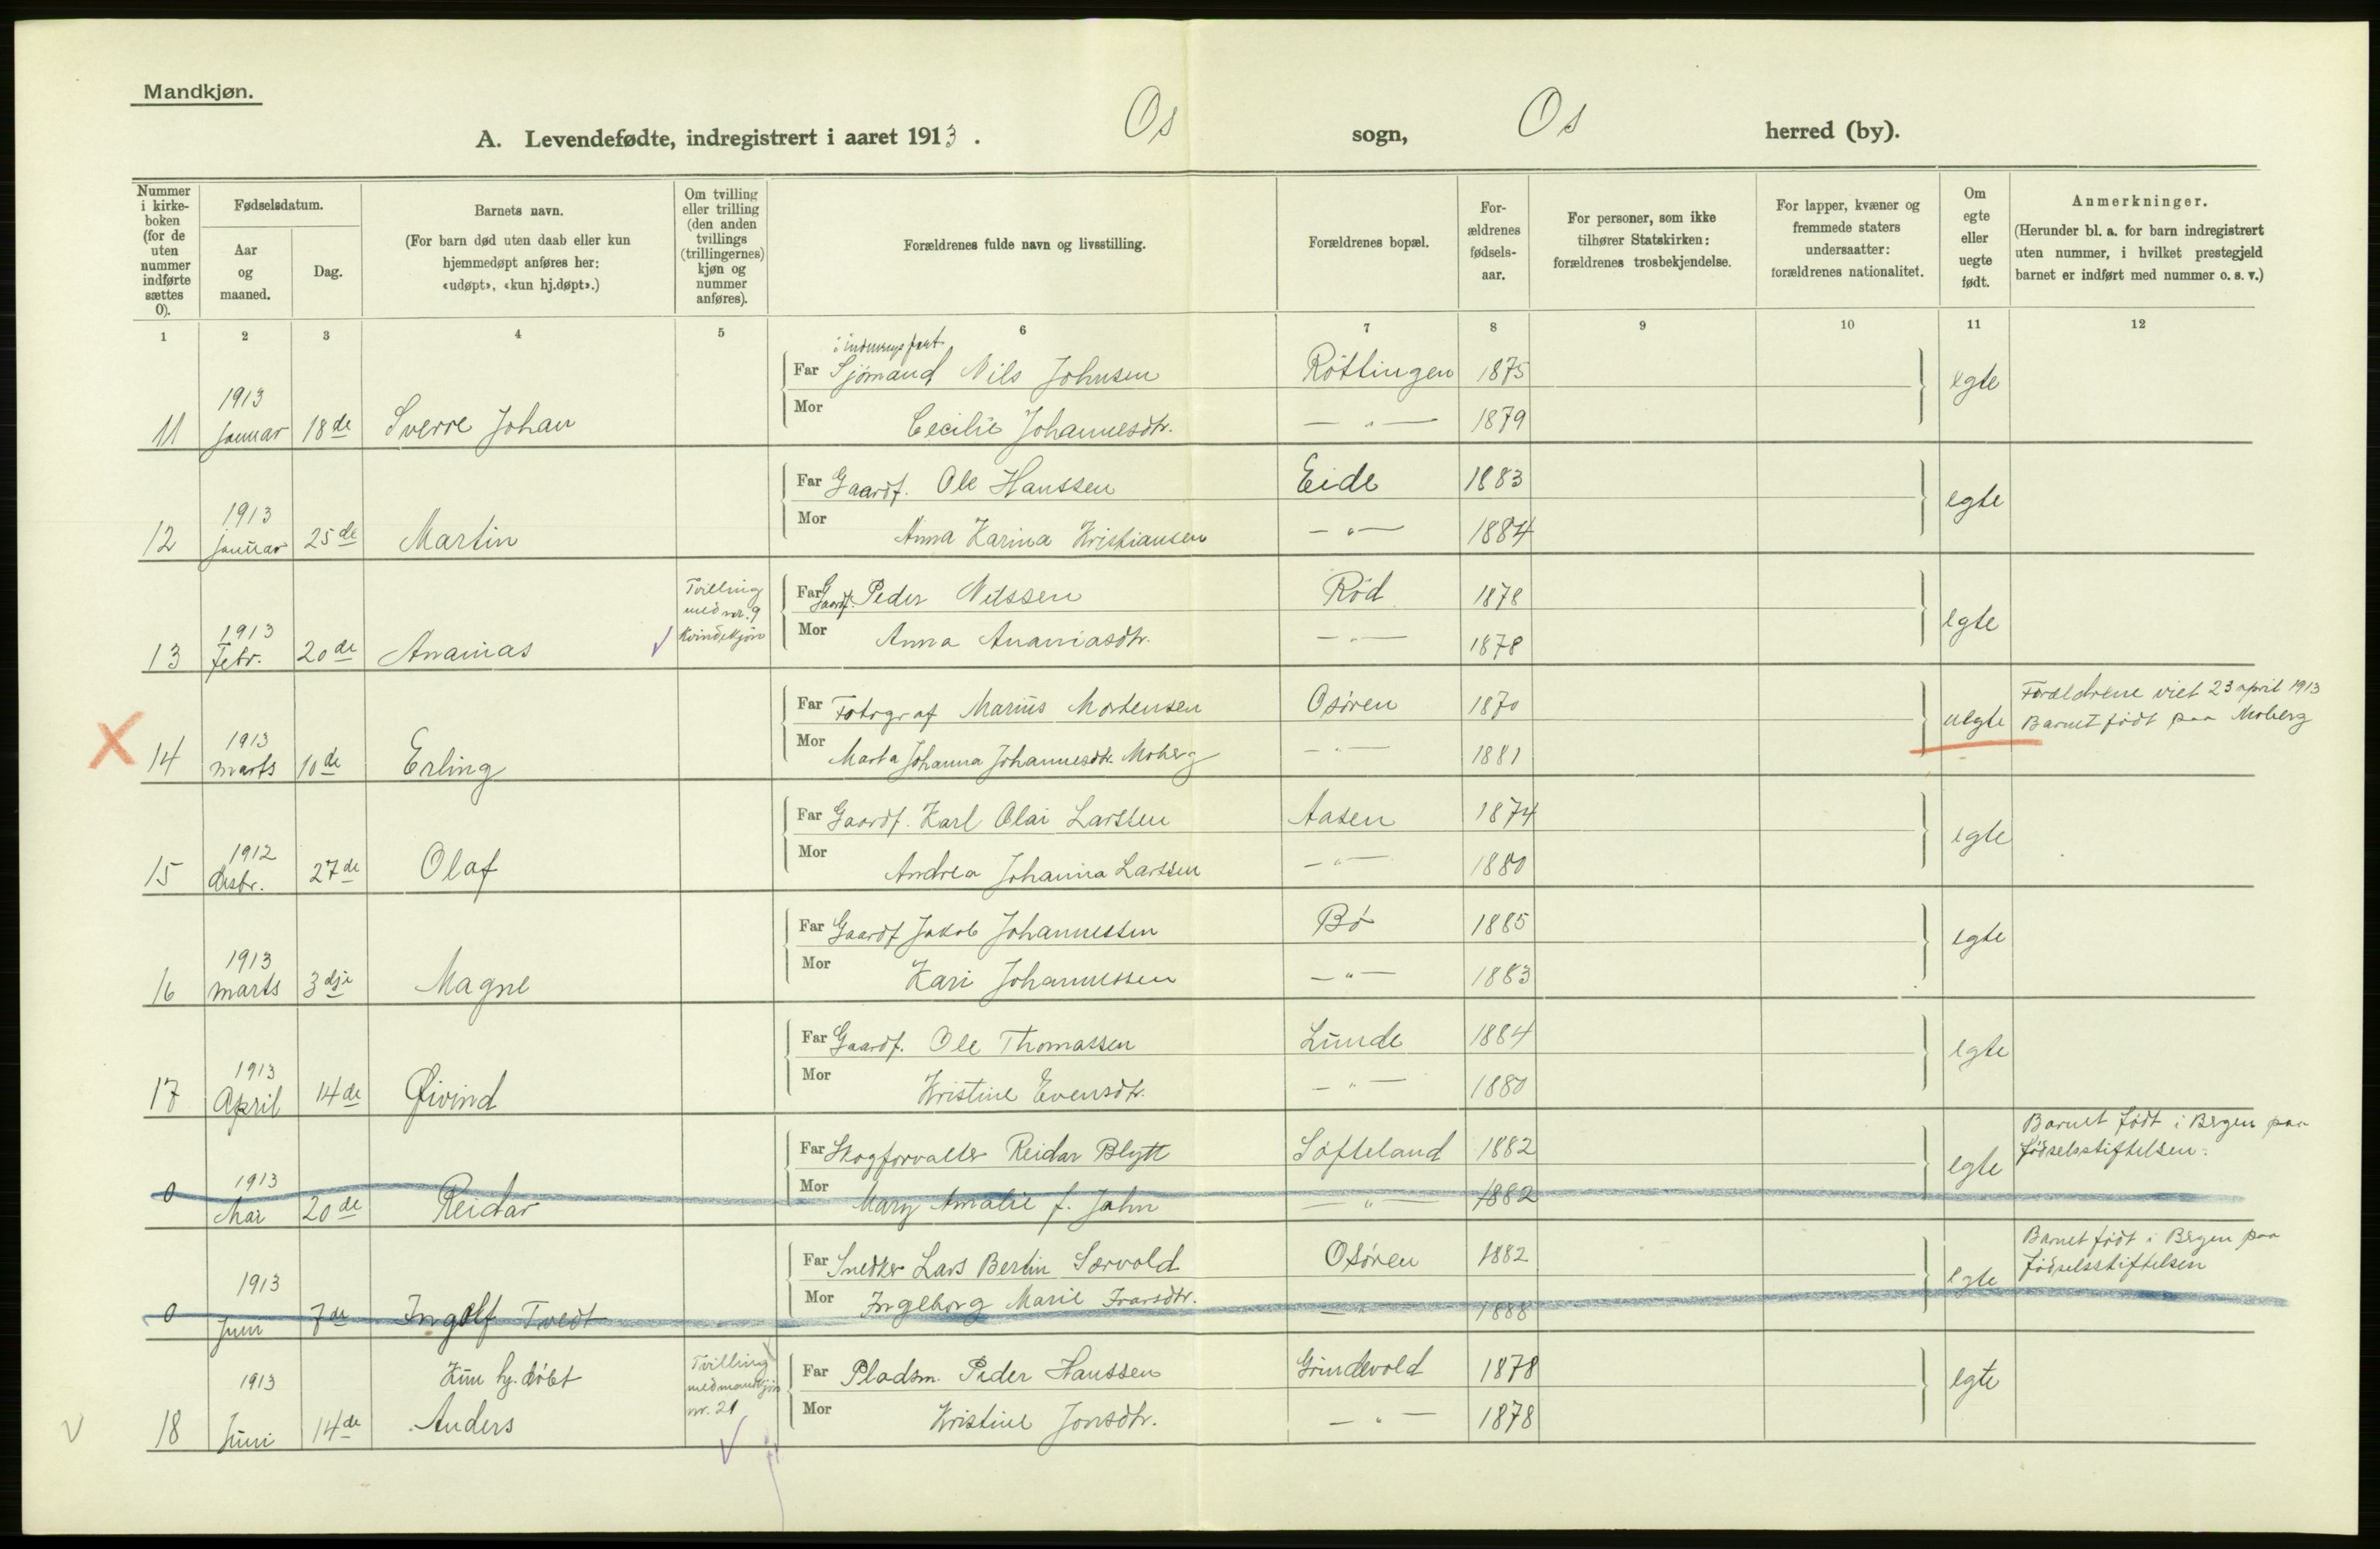 Mandkjøn.
A. Levendefødte, indregistrert i aaret 1913. Os sogn, Os herred (by).
Nummer i kirkeboken (for de uten nummer indførte sættes 0).
Fødselsdatum.
Aar og maaned.
Dag.
Barnets navn.
(For barn død uten daab eller kun hjemmedøpt anføres her: «udøpt», «kun hj.døpt».)
Om tvilling eller trilling (den anden tvillings (trillingernes) kjøn og nummer anføres).
Forældrenes fulde navn og livsstilling.
Forældrenes bopæl.
Forældrenes fødselsaar.
For personer, som ikke tilhører Statskirken: forældrenes trosbekjendelse.
For lapper, kvæner og fremmede staters undersaatter: forældrenes nationalitet.
Om egte eller uegte født.
Anmerkninger.
(Herunder bl. a. for barn indregistrert uten nummer, i hvilket prestegjeld barnet er indført med nummer o. s. v.)
1 2 3 4 5 6 7 8 9 10 11 12
Far Sjömand Nils Johnsen Röttingen 1875 egte
11 1913 Januar 18de Sverre Johan
Mor Cecilie Johannesdtr. — " — 1879
Far Gaardf. Ole Hanssen Eide 1883 egte
12 1913 januar 25de Martin
Mor Anna Karina Kristiansen — " — 1884
Tvilling med nr. 9 Kvindekjön
Far Gaardf. Peder Nilssen Röd 1878 egte
13 1913 Febr. 20de Ananias
Mor Anna Ananiasdtr. — " — 1878
Far Fotograf Marius Mortensen Osören 1870 uegte Forældrene viet 23 april 1913
Barnet födt paa Moberg
14 1913 marts 10de Erling
Mor Marta Johanna Johannesdtr. Moberg — " — 1881
Far Gaardf. Karl Olai Larssen Aasen 1874 egte
15 1912 desbr. 27de Olaf
Mor Andrea Johanna Larssen — " — 1880
Far Gaardf Jakob Johannessen Bö 1885 egte
16 1913 marts 3dje Magne
Mor Kari Johannessen — " — 1883
Far Gaardf. Ole Thomassen Lunde 1884 egte
17 1913 April 14de Øivind
Mor Kristine Evensdtr. — " — 1880
Far Skogforvalter Reidar Blytt Söfteland 1882 egte Barnet födt i Bergen paa
födselsstiftelsen.
0 1913 Mai 20de Reidar
Mor Mary Amalie f. Jahn — " — 1882
Far Snedker Lars Bertin Sørvold Osören 1882 egte Barnet födt i Bergen paa
födselsstiftelsen
0 1913 Juni 7de Ingolf Tvedt
Mor Ingeborg Marie Ivarsdtr. — " — 1888
Kun hj. döbt
Tvilling med mandkjön nr. 21
Far Pladsm. Peder Hanssen Grindevold 1878 egte
18 1913 Juni 14de Anders
Mor Kristine Jonsdtr. — " — 1878